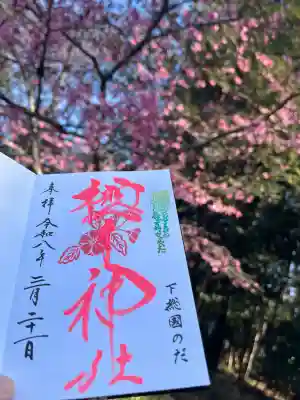 下総國のだ
櫻木神社
奉拝 令和八年三月二十一日